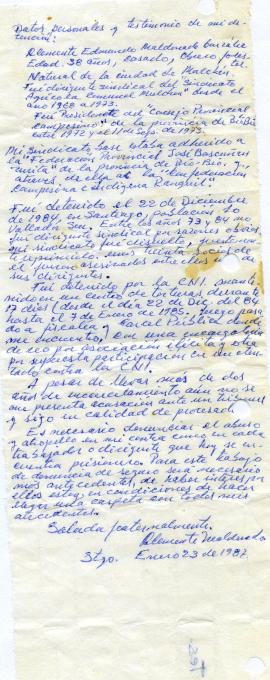 Datos personales y testimonio de mi de-
tención:
Clemente Edmundo Maldonado
Edad: 38 años, casado, Obrero
Natural de la ciudad de Mulchén.
Fui dirigente sindical del Sindicato
Agrícola "Manuel Rodríguez" desde el
año 1968 a 1973.
Fui Presidente del "Consejo Provincial
Campesino" de la provincia de Bío Bío
entre 1972 y el 11 de Sep. de 1973.
Mi Sindicato base estaba adherido a
la "Federación Provincial José
de la provincia de Bío-Bío y a
través de ella a la "Confederación
Campesina e Indígena Ranquil".
Fui detenido el 22 de Diciembre
de 1984, en Santiago, población Lo
Valledor Sur. Entre los años 73 y 84 no
fui dirigente sindical por razones obvias,
mi sindicato fue disuelto,
y reprimido. unos 
y fueron asesinados entre ellos uno de
sus dirigentes.
Fui detenido por la C.N.I. mante-
nido en un centro de torturas durante
17 días (desde el día 22 de Dic. del 84
hasta el 7 de Enero de 1985. Luego pasa-
do a fiscalía y Cárcel Pública donde
me encuentro con una encargatoria
de reo por asociación ilícita y otra
por supuesta participación en un aten-
tado contra la CNI.
A pesar de llevar más de dos
años de encarcelamiento aún no se
me presenta acusación ante un tribunal
y sigo en calidad de procesado.
Es necesario denunciar el abuso
y atropello en mi contra como en cada
trabajador o dirigente que hoy se en-
cuentra prisionero. Para este trabajo
de denuncia de seguro será necesario
más antecedentes, de haber interés por
ellos estoy en condiciones de hacer
llegar una carpeta con todos mis
antecedentes.
Saluda fraternalmente.
Clemente Maldonado
Stgo. Enero 23 de 1987